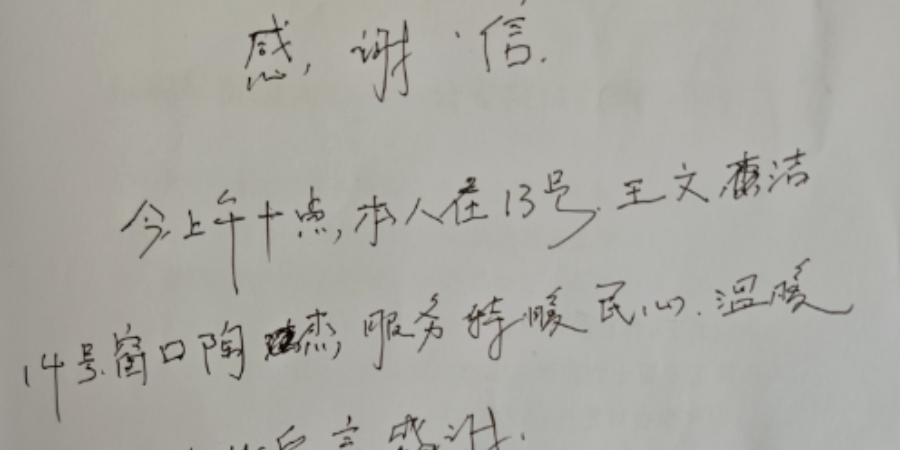 感谢信.
今上午十点,本人在13号.王文洁
14号.窗口陶杰,服务特暖民心.温暖
感谢.